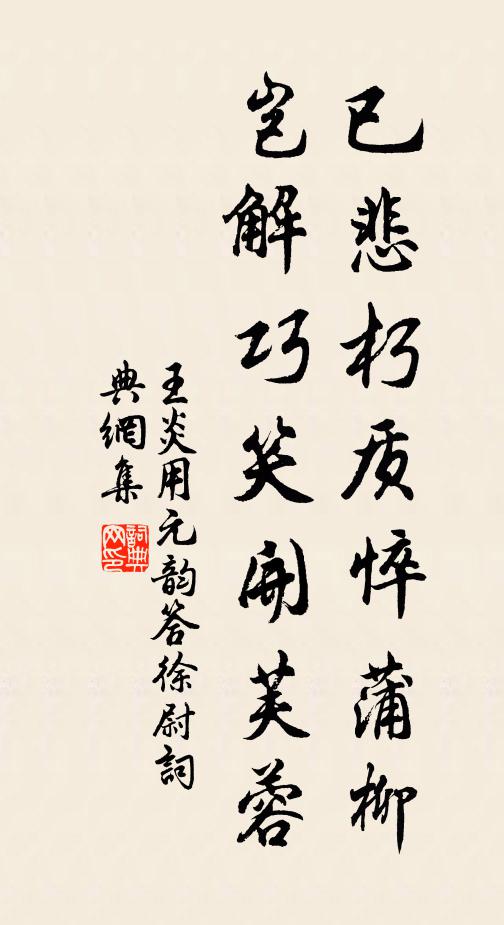 已悲朽质悴蒲柳
岂解巧笑開芙蓉
王炎用元韵答徐尉詞
典網集
詞典網印